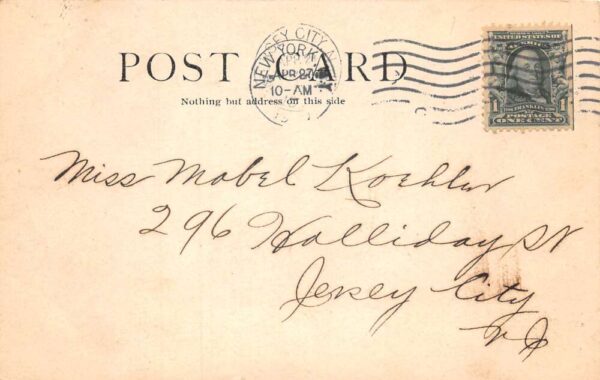 POST CARD
Nothing but address on this side
JERSEY CITY
NEW YORK
APR 27
10-AM
UNITED STATES OF
1 FRANKLIN 1
POSTAGE
ONE CENT
Miss Mabel Koehler
296 Halliday St
Jersey City
N J